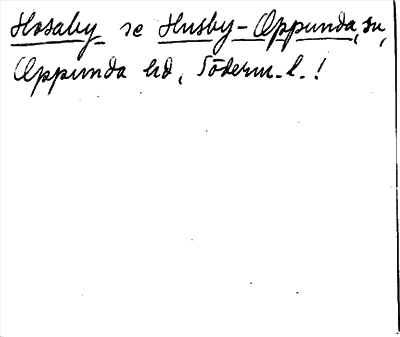 Hosaby se Husby-Oppunda, sn,
Oppunda hd, Söderm. l. !